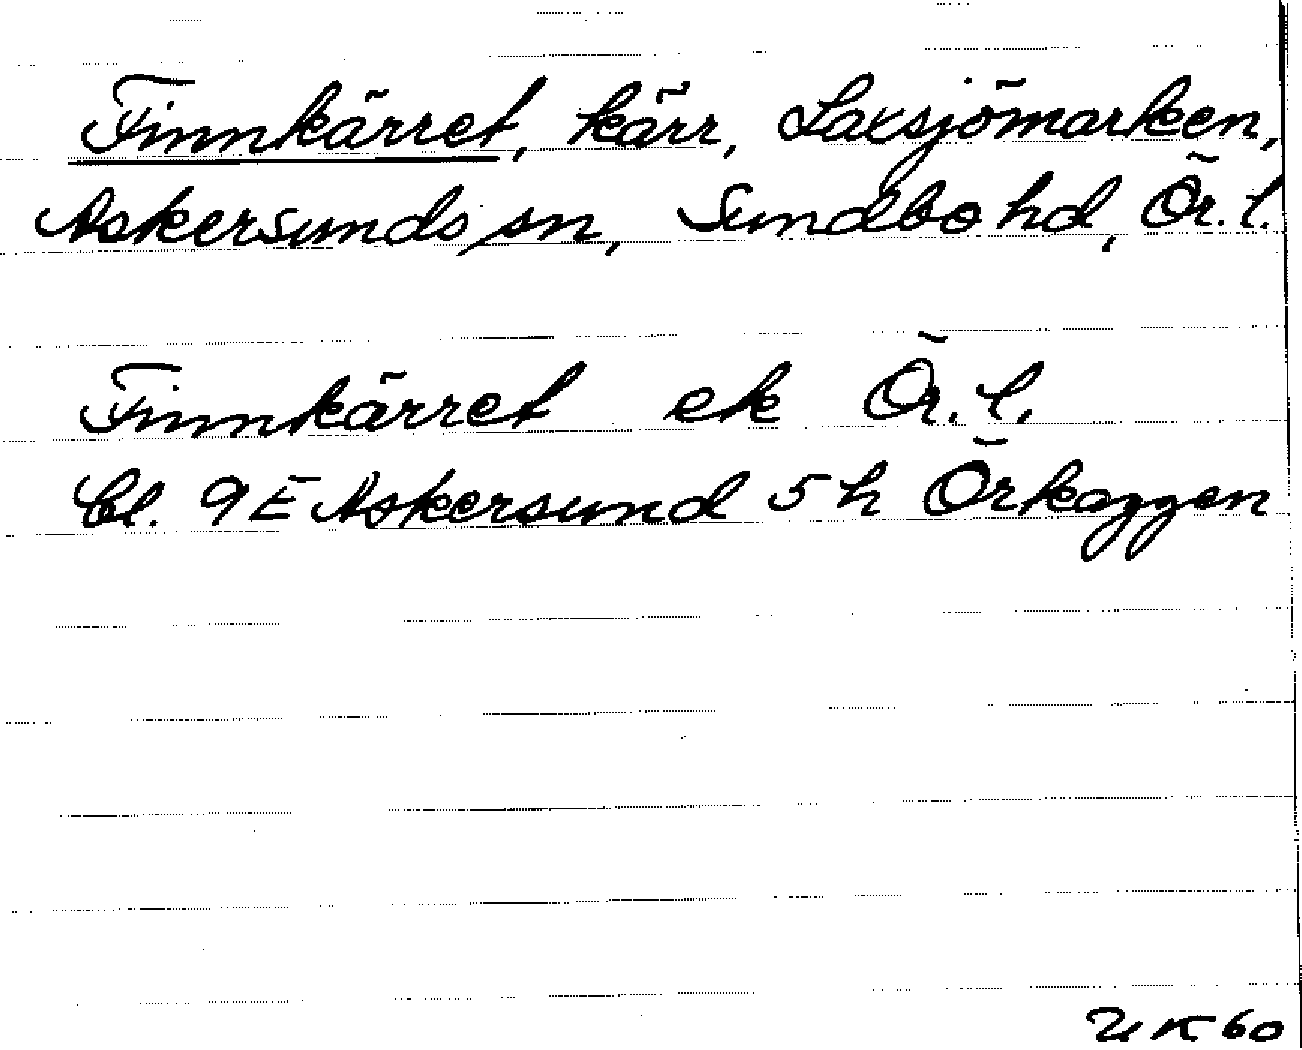 Finnkärret, kärr, Laxsjömarken,
Askersunds sn, Sundbo hd, Ör. l.
Finnkärret ek Ör. l.
Bl. 9E Askersund 5h Örkaggen
UK 60